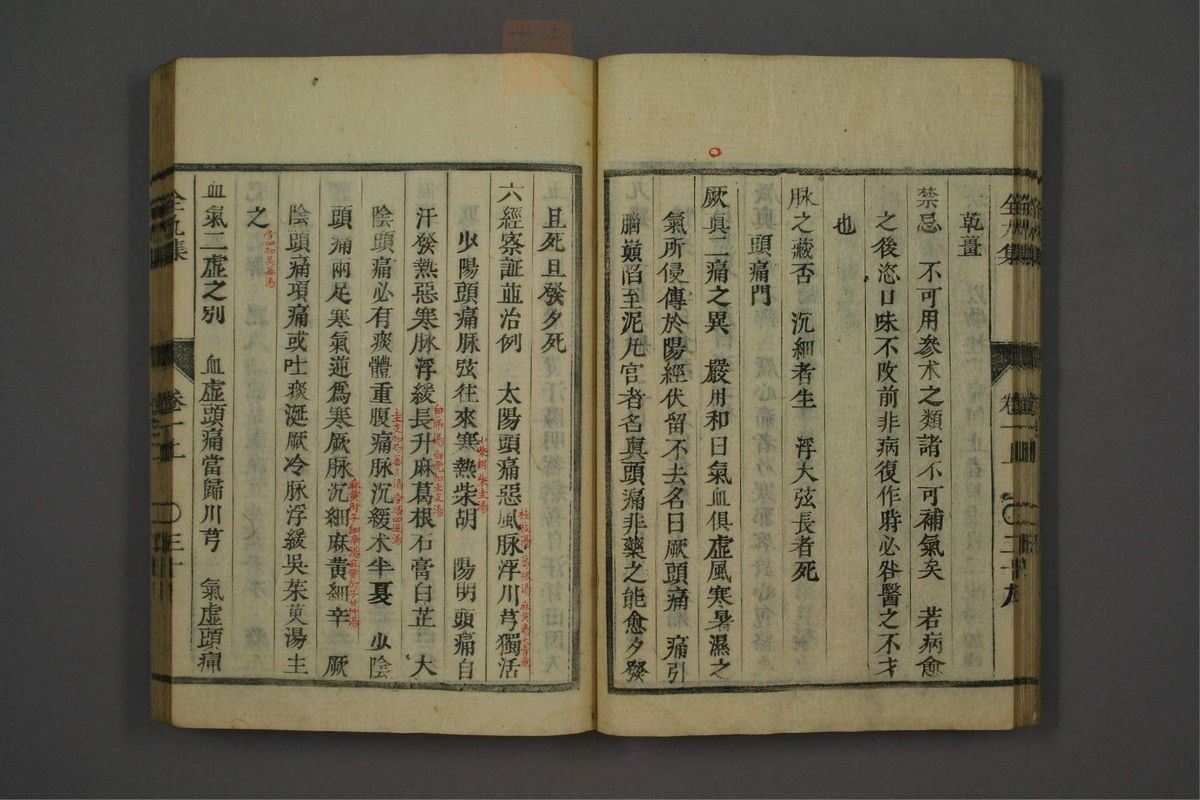 乾薑
禁忌　不可用參术之類諸不可補氣矣　若病愈
之後恣口味不改前非病復作時必咎醫之不才
也
脉之藏否　沉細者生　浮大弦長者死
頭痛門
厥眞二痛之異　嚴用和曰氣血俱虛風寒暑濕之
氣所侵傳於陽經伏留不去名曰厥頭痛　痛引
腦巔陷至泥丸宮者名眞頭痛非藥之能愈夕發
旦死旦發夕死
六經察証並治例　太陽頭痛惡風脉浮川芎獨活
桂枝湯 葛根湯 麻黄湯大青竜
少陽頭痛脉弦往來寒熱柴胡　陽明頭痛自
小柴胡 柴圭湯
汗發熱惡寒脉浮緩長升麻葛根石膏白芷　大
白虎湯 白虎加圭支湯
陰頭痛必有痰體重腹痛脉沉緩术半夏　少陰
頭痛兩足寒氣逆爲寒厥脉沉細麻黄細辛　厥
麻黄附子細辛湯麻黄附子甘草湯
陰頭痛項痛或吐痰涎厥冷脉浮緩吳茱萸湯主
之
血氣二虛之別　血虛頭痛當歸川芎　氣虛頭痛
全九集
卷一上
〇三十
全九集
卷一上